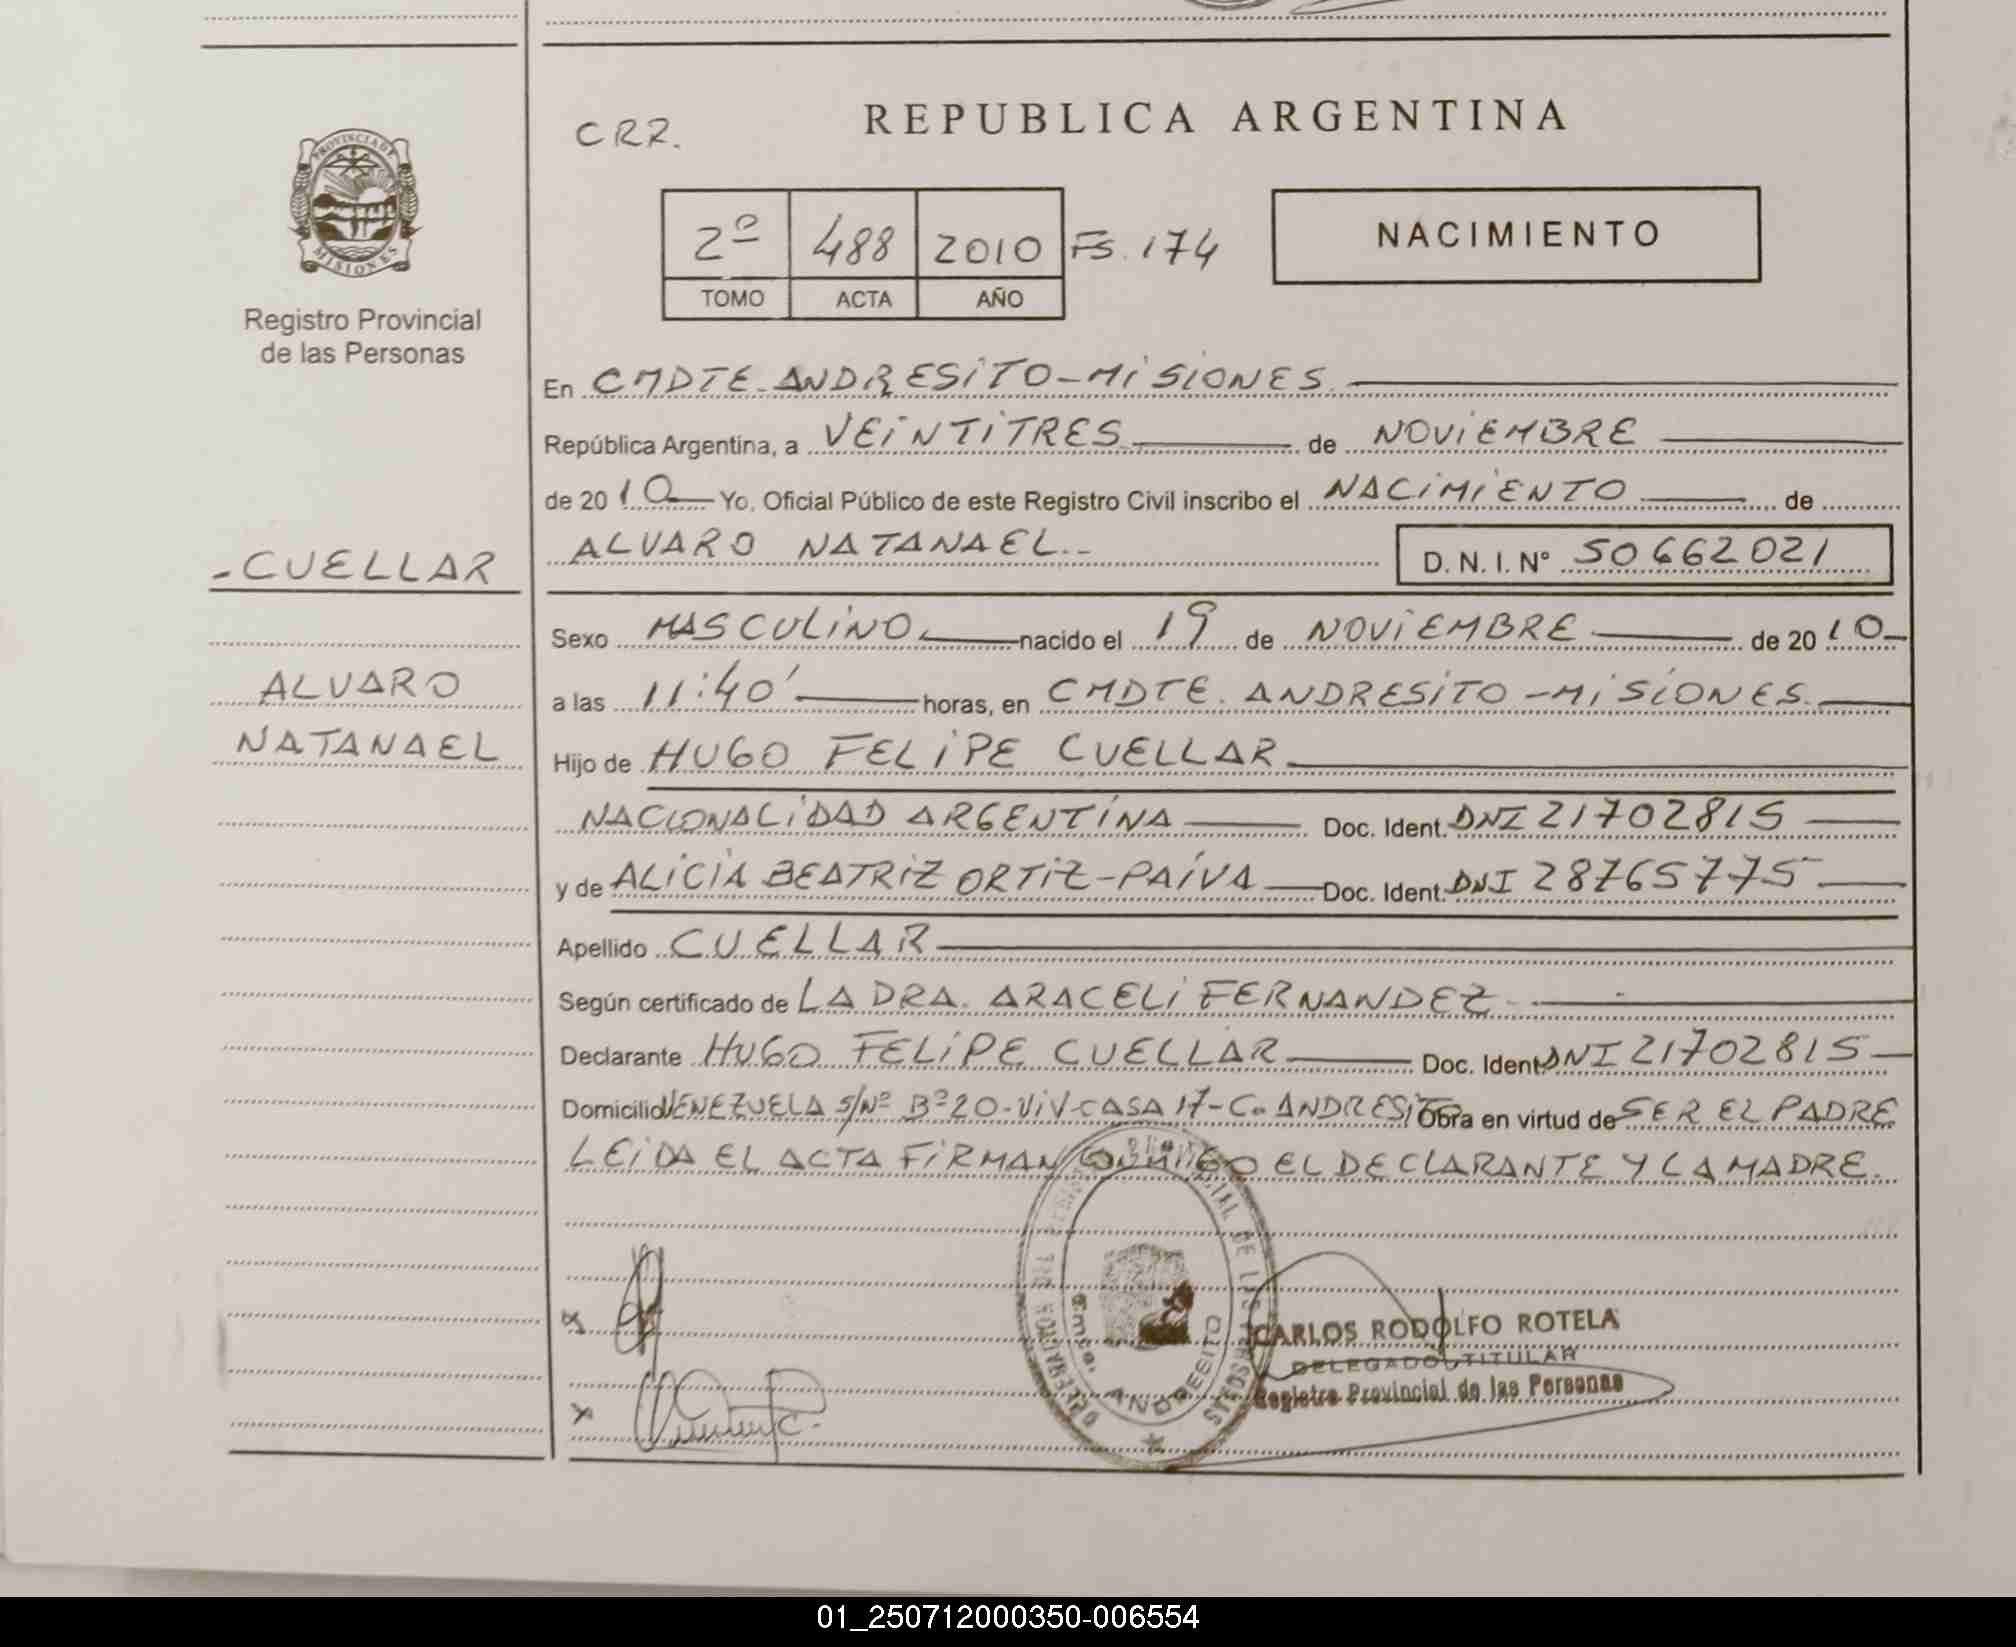 REPUBLICA ARGENTINA
CRR.
PROVINCIA DE
MISIONES
Registro Provincial
de las Personas
2º 488 2010 FS. 174
TOMO ACTA AÑO
NACIMIENTO
En CMDTE. ANDRESITO-MISIONES.
República Argentina, a VEINTITRES de NOVIEMBRE
de 2010 Yo, Oficial Público de este Registro Civil inscribo el NACIMIENTO de
ALVARO NATANAEL.-
D. N. I. Nº 50662021
-CUELLAR
ALVARO
NATANAEL
Sexo MASCULINO nacido el 19 de NOVIEMBRE de 2010
a las 11:40' horas, en CMDTE. ANDRESITO-MISIONES.
Hijo de HUGO FELIPE CUELLAR
NACIONALIDAD ARGENTINA Doc. Ident. DNI 21702815
y de ALICIA BEATRIZ ORTIZ-PAIVA Doc. Ident. DNI 28765775
Apellido CUELLAR
Según certificado de LA DRA. ARACELI FERNANDEZ
Declarante HUGO FELIPE CUELLAR Doc. Ident. DNI 21702815
Domicilio VENEZUELA S/Nº Bº20-VIV-CASA 17-C. ANDRESITO Obra en virtud de SER EL PADRE
LEIDA EL ACTA FIRMAN CONMIGO EL DECLARANTE Y LA MADRE.
ANDRESITO
CARLOS RODOLFO ROTELA
DELEGADO TITULAR
Registro Provincial de las Personas
01_250712000350-006554